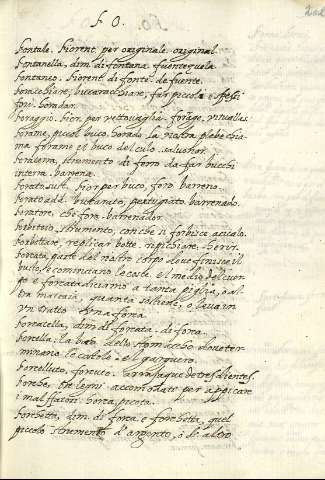 F O.
fontale. Fiorent. per originale. original.
fontanella, dim. di fontana fuenteçuela
fontaneo. Fiorent. di fonte. de fuente.
foracchiare, bucaracchiare, far piccoli e spessi
fori. horadar.
foraggio. Fior. per vettovaglia. forage, vituallas.
forame, picciol buco. horado. la nostra plebe chia
ma forame el buco del culo. salvohor.
, strumento di ferro da far bucchi
interra. barrena.
forato sust. Fior. per buco, foro. barreno.
forato add. bucato, pertugiato. barrenado.
foratore, che fora. barrenador.
forbitoio, strumento, con che si forbisce. acicalo.
forbottare, replicar botte. herir.
forcata, parte del nostro corpo dove finisce il
busto, e cominciano le coscie. el medio del cuer
po e forcata diciamo a tanta paglia, o al
tra materia, quanta sostiene, o leva in
un tratto una forca.
forcatella, dim. di forcata. di forca.
forcella. La bocca dello stomaccho dove ter
minano le costole. el garguero.
forcelluto, forcuto. de tres dientes.
forche, tre legni accomodati per appicare
i malfattori. horca, picota.
forchetta, dim. di forca. e forchetta, quel
piccolo strumento d'argento, o d'altro